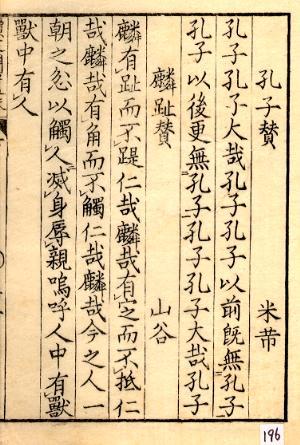 孔子賛 米芾
孔子孔子大哉孔子孔子以前既無孔子
孔子以後更無孔子孔子孔子大哉孔子
麟趾賛 山谷
麟有趾而不踶仁哉麟哉有㝎而不抵仁
哉麟哉有角而不觸仁哉麟哉今之人一
朝之忿以觸人滅身辱親嗚呼人中有獸
獸中有人
196